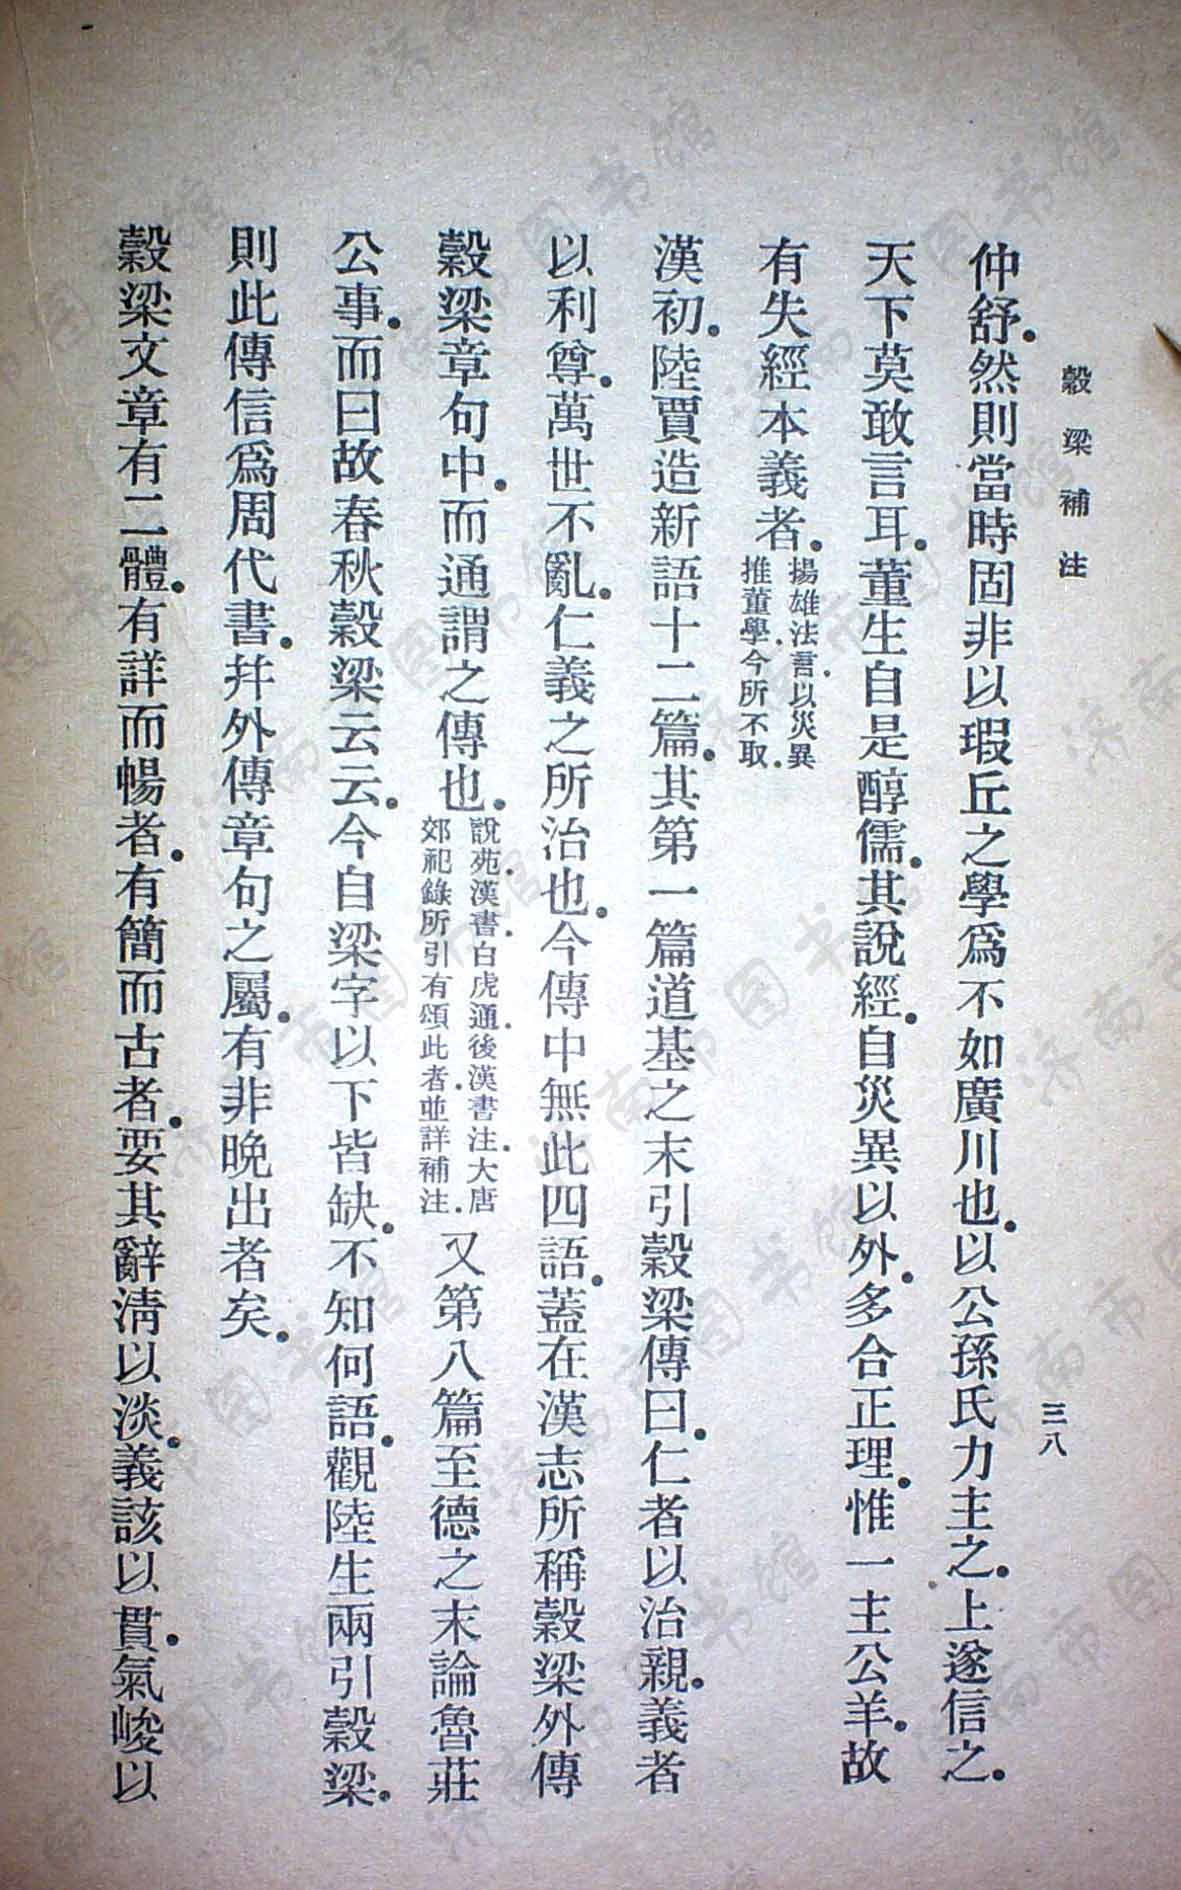 穀梁補注
三八
仲舒。然則當時固非以瑕丘之學爲不如廣川也。以公孫氏力主之。上遂信之。
天下莫敢言耳。董生自是醇儒。其說經。自災異以外。多合正理。惟一主公羊。故
有失經本義者。
揚雄法言。以災異
推董學。今所不取。
漢初。陸賈造新語十二篇。其第一篇道基之末引穀梁傳曰。仁者以治親。義者
以利尊。萬世不亂。仁義之所治也。今傳中無此四語。蓋在漢志所稱穀梁外傳
穀梁章句中。而通謂之傳也。
說苑。漢書。白虎通。後漢書注。大唐
郊祀錄所引有頌此者。並詳補注。
又第八篇至德之末論魯莊
公事。而曰故春秋穀梁云云。今自梁字以下皆缺。不知何語。觀陸生兩引穀梁。
則此傳信爲周代書。幷外傳章句之屬。有非晚出者矣。
穀梁文章有二體。有詳而暢者。有簡而古者。要其辭淸以淡。義該以貫。氣峻以
济南市图书馆